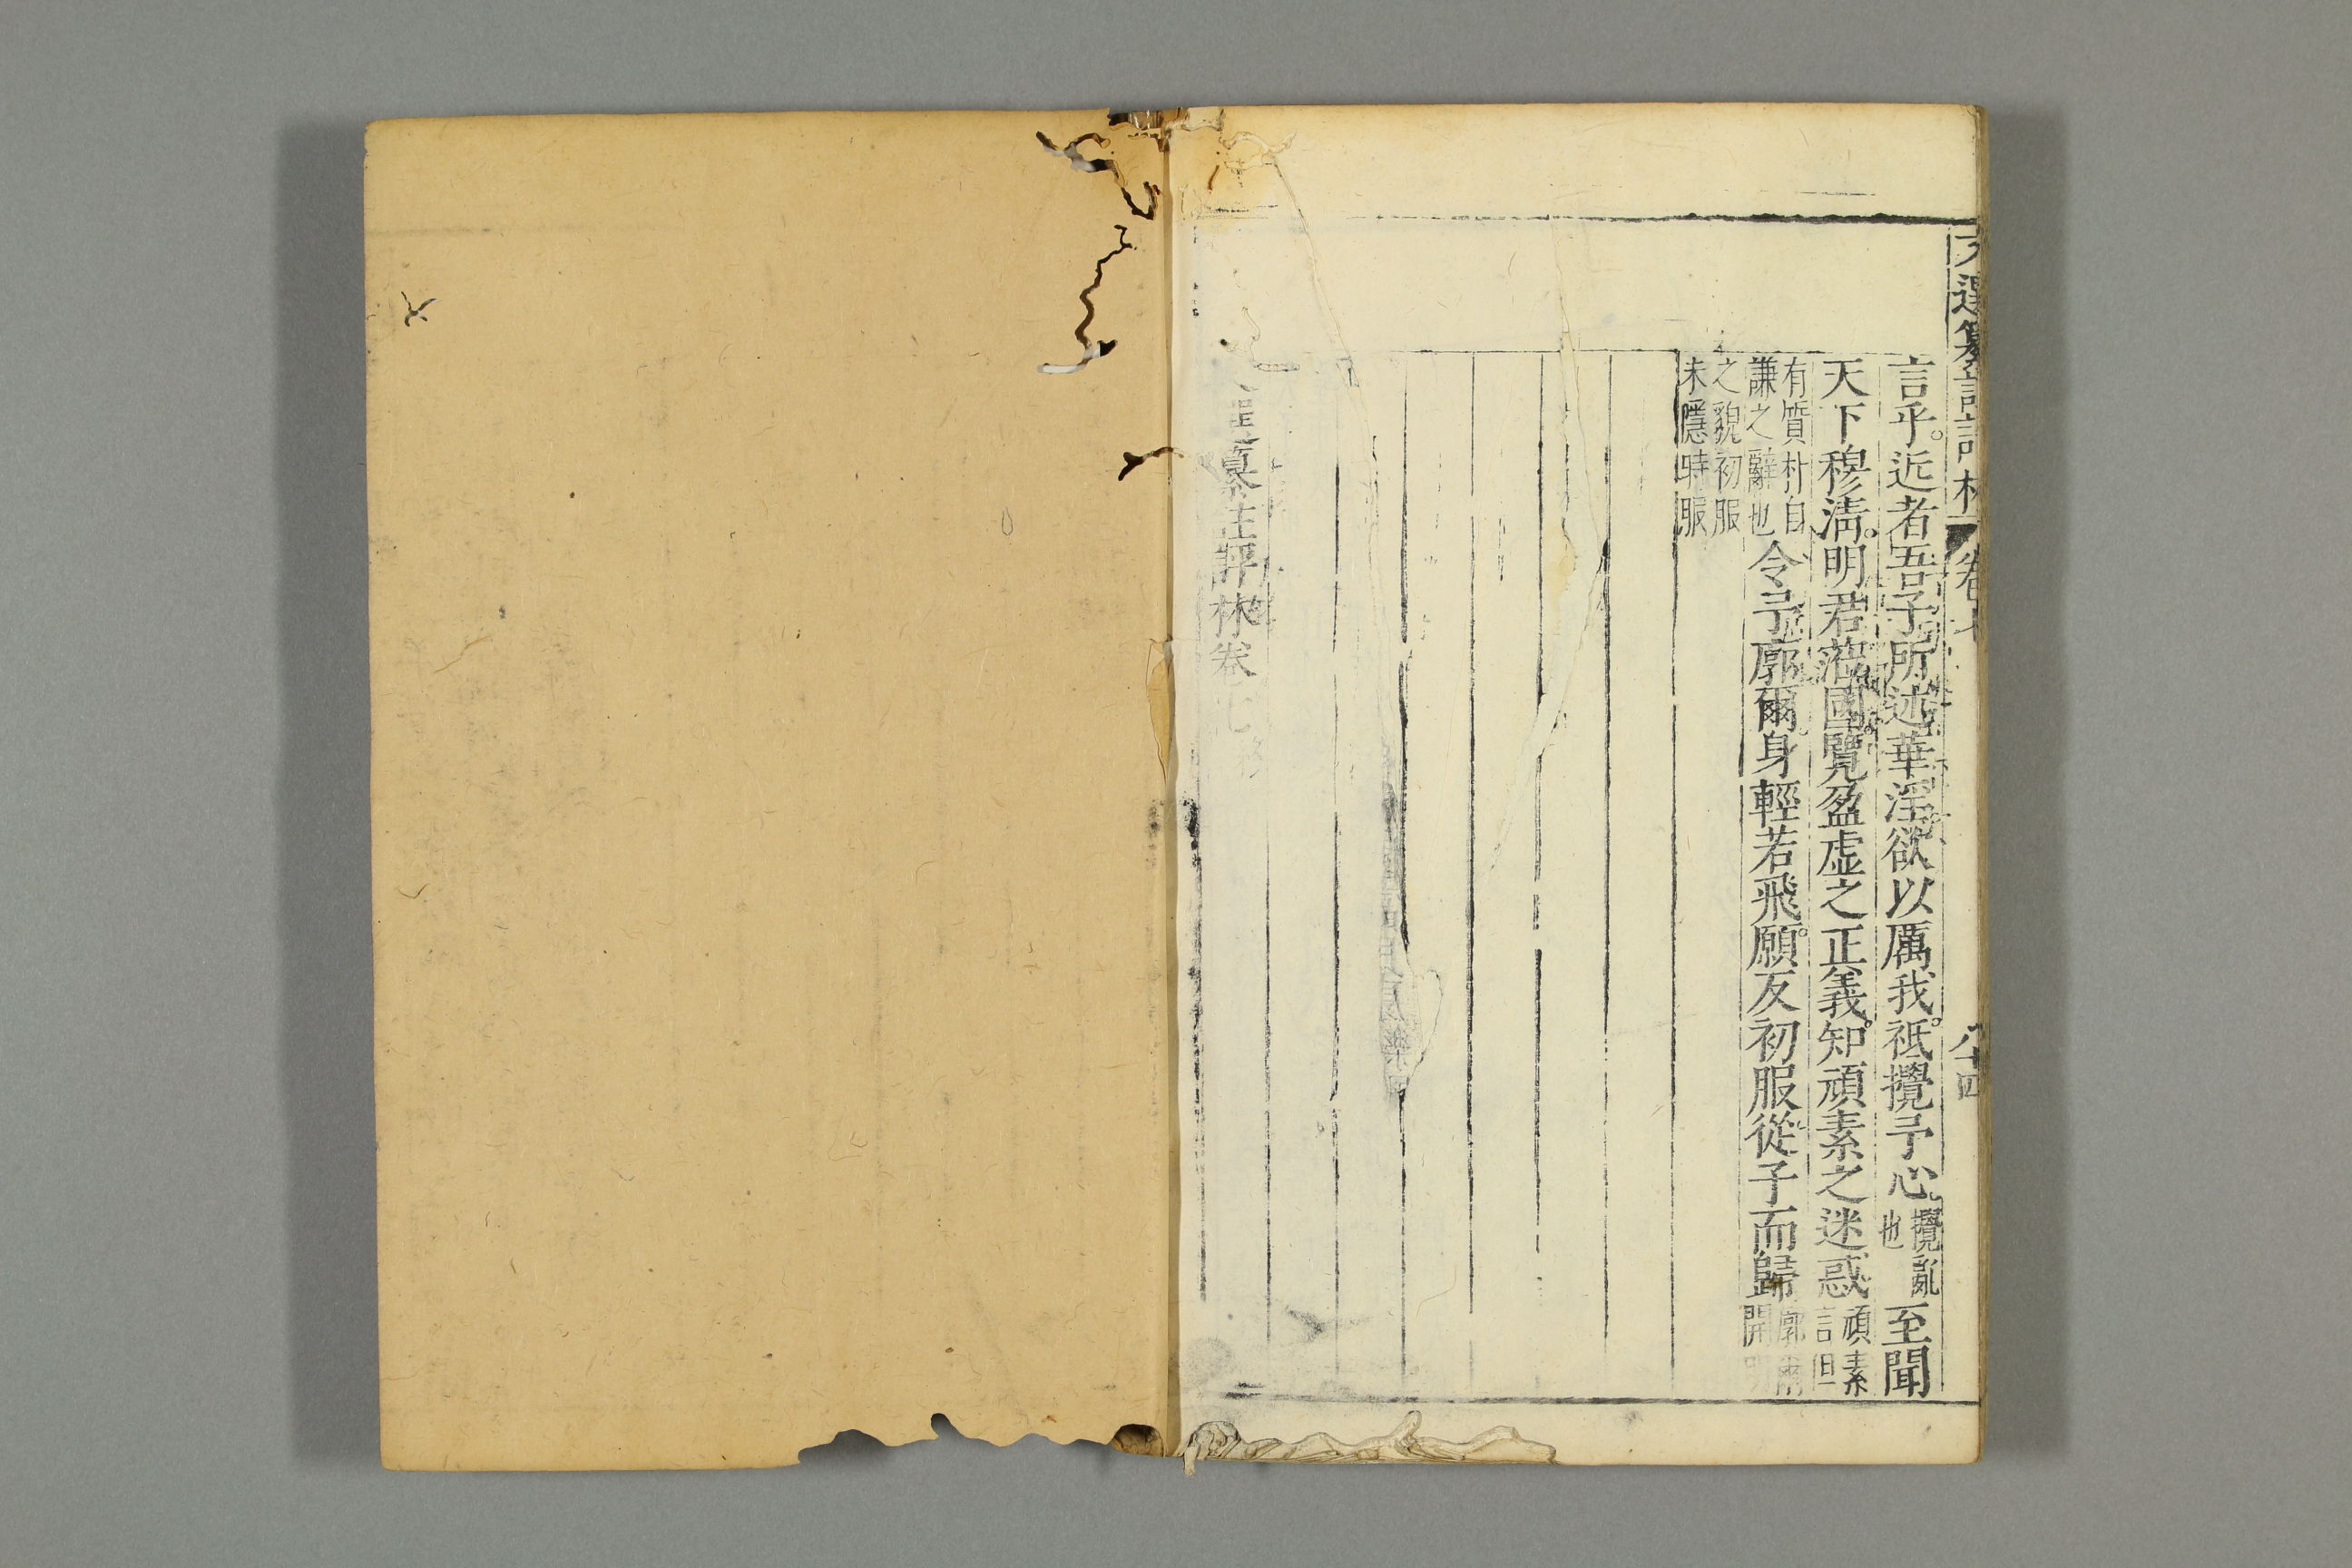 文選纂註評林 卷七 八十四
言乎。近者吾子所述華淫欲以厲我。祗攪予心。攪亂也至聞
天下穆淸。明君蒞國。覽盈虛之正義。知頑素之迷惑頑素言但
有質朴自謙之辭也令予廓爾。身輕若飛。願反初服從子而歸廓爾開明
之貌初服未隱時服
選纂註評林卷七終